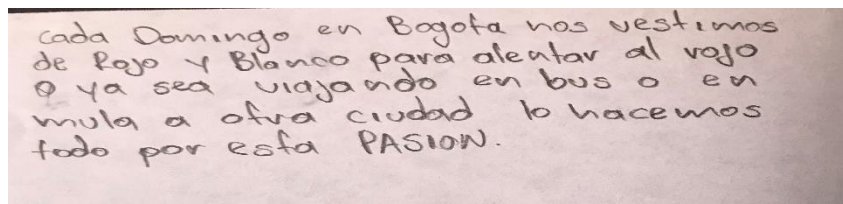 cada Domingo en Bogota nos vestimos
de Rojo y Blanco para alentar al rojo
o ya sea viajando en bus o en
mula a otra ciudad lo hacemos
todo por esta PASION.